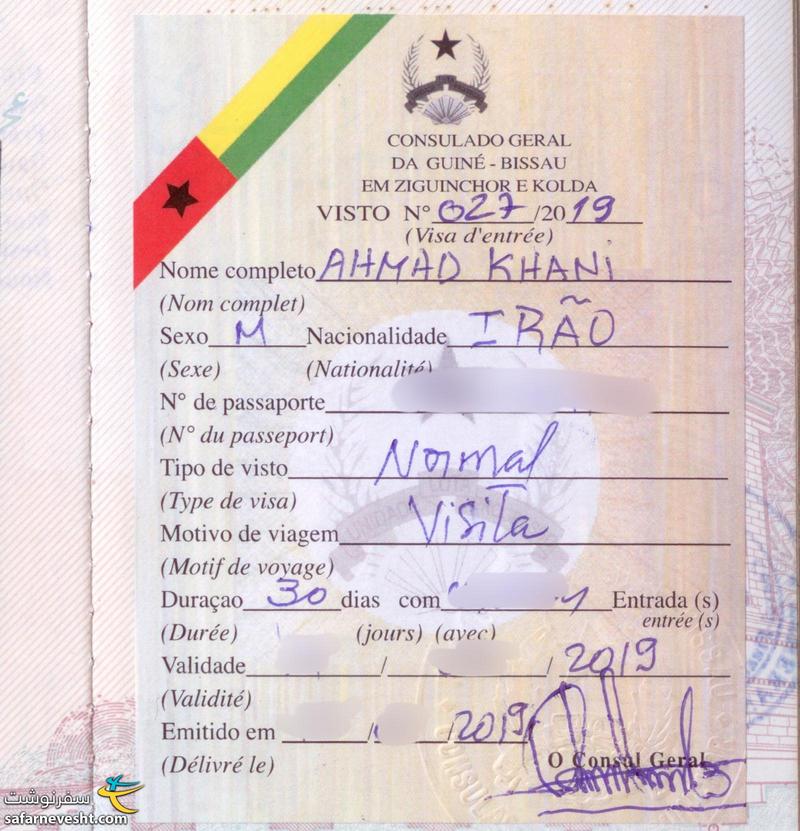 CONSULADO GERAL
DA GUINÉ - BISSAU
EM ZIGUINCHOR E KOLDA
VISTO N° 027/2019
(Visa d'entrée)
Nome completo AHMAD KHANI
(Nom complet)
Sexo M Nacionalidade IRÃO
(Sexe) (Nationalité)
N° de passaporte
(N° du passeport)
Tipo de visto Normal
(Type de visa)
Motivo de viagem Visita
(Motif de voyage)
Duraçao 30 dias com Entrada (s)
(Durée) (jours) (avec) entrée (s)
Validade / / 2019
(Validité)
Emitido em / / 2019
(Délivré le) O Consul Geral
سفرنوشت
safarnevesht.com